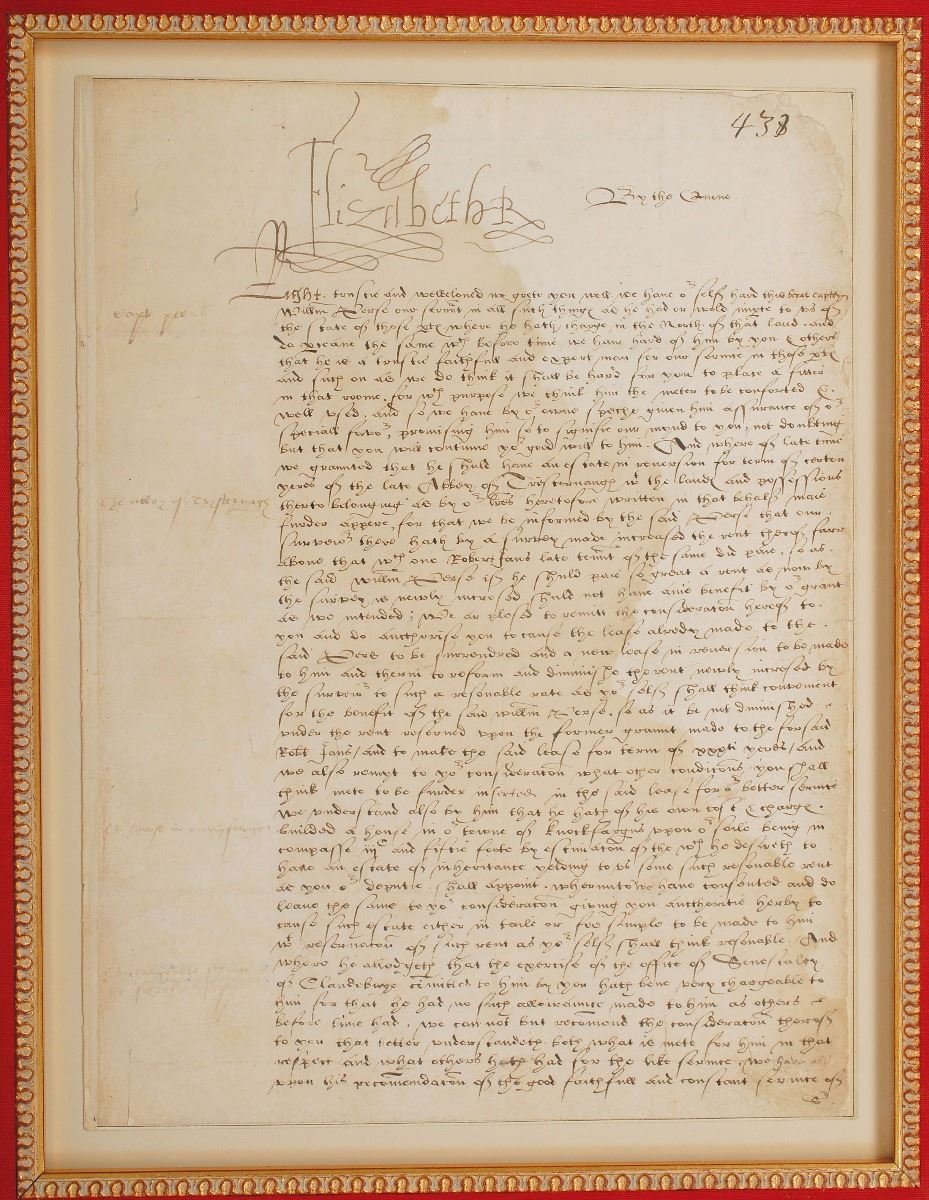 438
Elizabeth R
By the Quene
Right trustie and welbeloved we grete you well. we have oʳ self hard this berar Capten
Willm Perse our servant in all such things as he had or wold impte to us of
the state of those ptes where he hath charge in the North of that land. and
do perceave the same wᶜʰ before time we have hard of him by you & others
that he is a trustie faithfull and expert man for our servíce in those ptes
and such on as we do think it shall be hard for you to place a fitter
in that roome. for wᶜʰ purpose we think him the meter to be conforted &
well used, and so we have by oʳ owne speche given him assurance of oʳ
speciall favoʳ, promising him so to signifie our mynd to you, not doubting
but that you will continue yoʳ good will to him. And where of late time
we graunted that he shuld have an estate in reversion for term of certen
yeres of the late Abbey of Tristernaugh wᵗ the landes and possessions
therto belonging as by oʳ lres heretofore written in that behalf maie
furder appere, for that we be informed by the said Perse that our
surveioʳ there hath by a survey made increased the rent therof farr
above that wᶜʰ one Robert Jans late tennt of the same did paie, so as
the said Willm Perse if he shuld paie so great a rent as now by
the survey is newly incresed shuld not have anie benefit by oʳ grant
as we intended; We ar plesed to remitt the consideracon herof to
you and do aucthorise you to cause the lease alredy made to the
said Pers to be surrendred and a new lease in reversion to be made
to him and therin to reform and diminishe the rent newly incresed by
the surveioʳ to such a resonable rate as yoʳ self shall think convenient
for the benefit of the said Willm Perse, so as it be not diminished
under the rent reserved upon the former graunt made to the forsaid
Robt Jans/ and to make the said lease for term of xxxti yeres/ and
we also remyt to yoʳ consideracon what other condicons you shall
think mete to be furder inserted in the said lease for oʳ better service
We understand also by him that he hath of his own cost & charge
builded a house in oʳ towne of Knockfargus upon oʳ soile being in
compasse and fiftie foote by estimacon of the wᶜʰ he desireth to
have an estate of inheritance yelding to us some such resonable rent
as you oʳ deputie shall appoint, wherunto we have consented and do
leave the same to yoʳ consideracon giving you aucthoritie herby to
cause such estate either in taile or fee simple to be made to him
wᵗ reservacon of such rent as yoʳ self shall think resonable. And
where he alledgeth that the exercise of the office of Seneschalcy
of Clandeboye comitted to him by you hath bene very chargeable to
him for that he had no such allowaunce made to him as others
before time had, we can not but recomend the consideracon therof
to you that better understandeth both what is mete for him in that
respect and what others hath had for the like service. we have also
upon his recomendacon of the good faithfull and constant service of
Capt pers
The abbey of Tristernagh